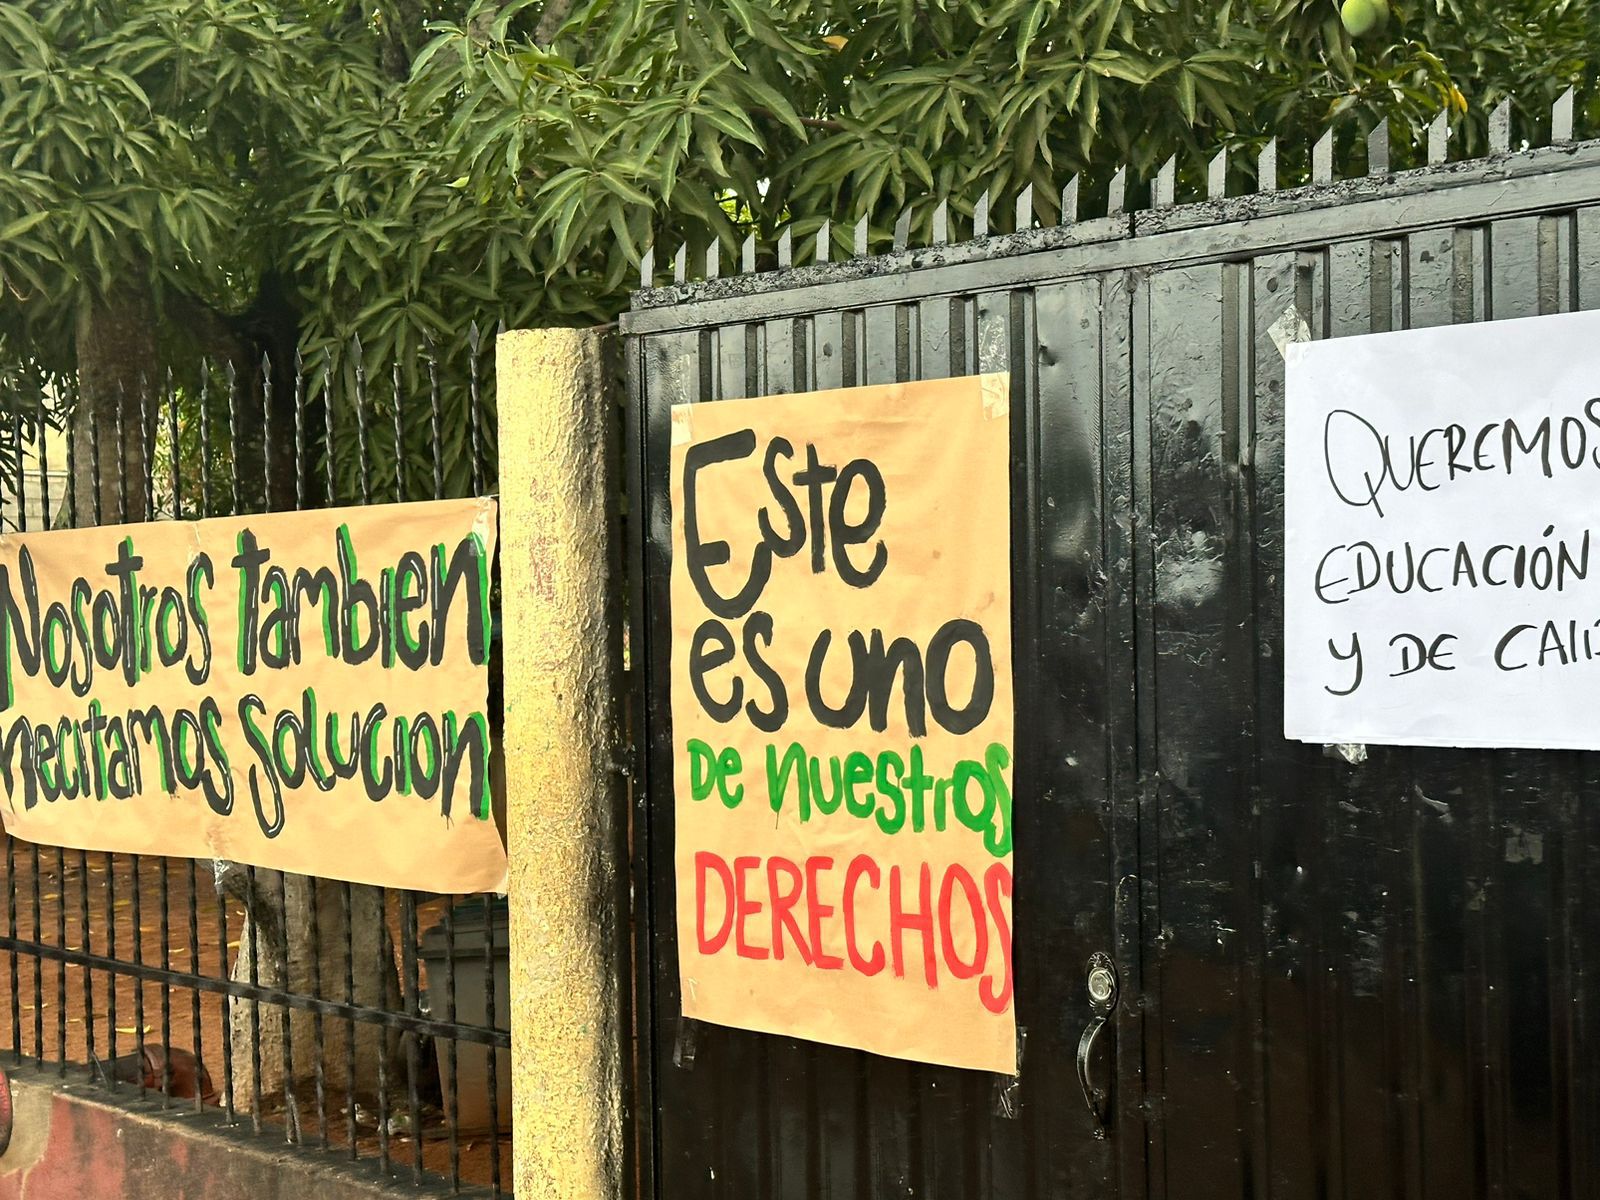 Nosotros tambien
necitamos solucion
Este
es uno
de nuestros
DERECHOS
QUEREMOS
EDUCACIÓN
Y DE CALI